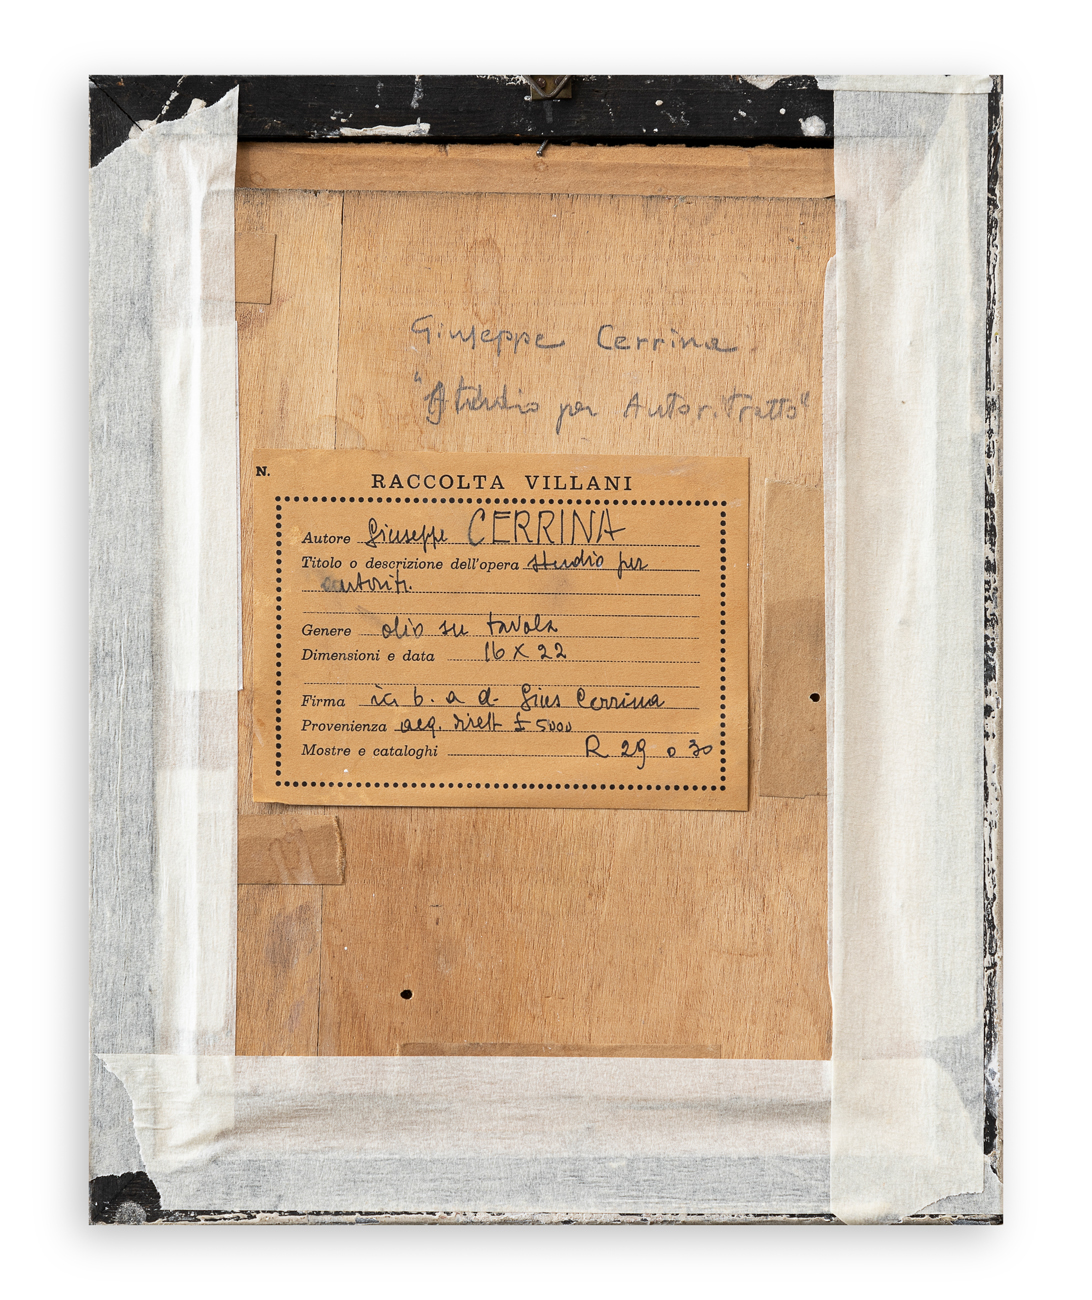 Giuseppe Cerrina
"Studio per Autoritratto"
N.
RACCOLTA VILLANI
Autore Giuseppe CERRINA
Titolo o descrizione dell'opera studio per
autoritr.
Genere olio su tavola
Dimensioni e data 16 x 22
Firma in b. a d. Gius Cerrina
Provenienza acq. dirett £ 5000
Mostre e cataloghi R 29 o 30